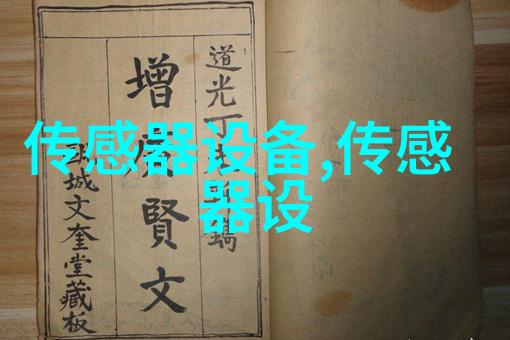 传感器设备,传感
器设
道光丁
增廣賢文
城文奎堂藏板